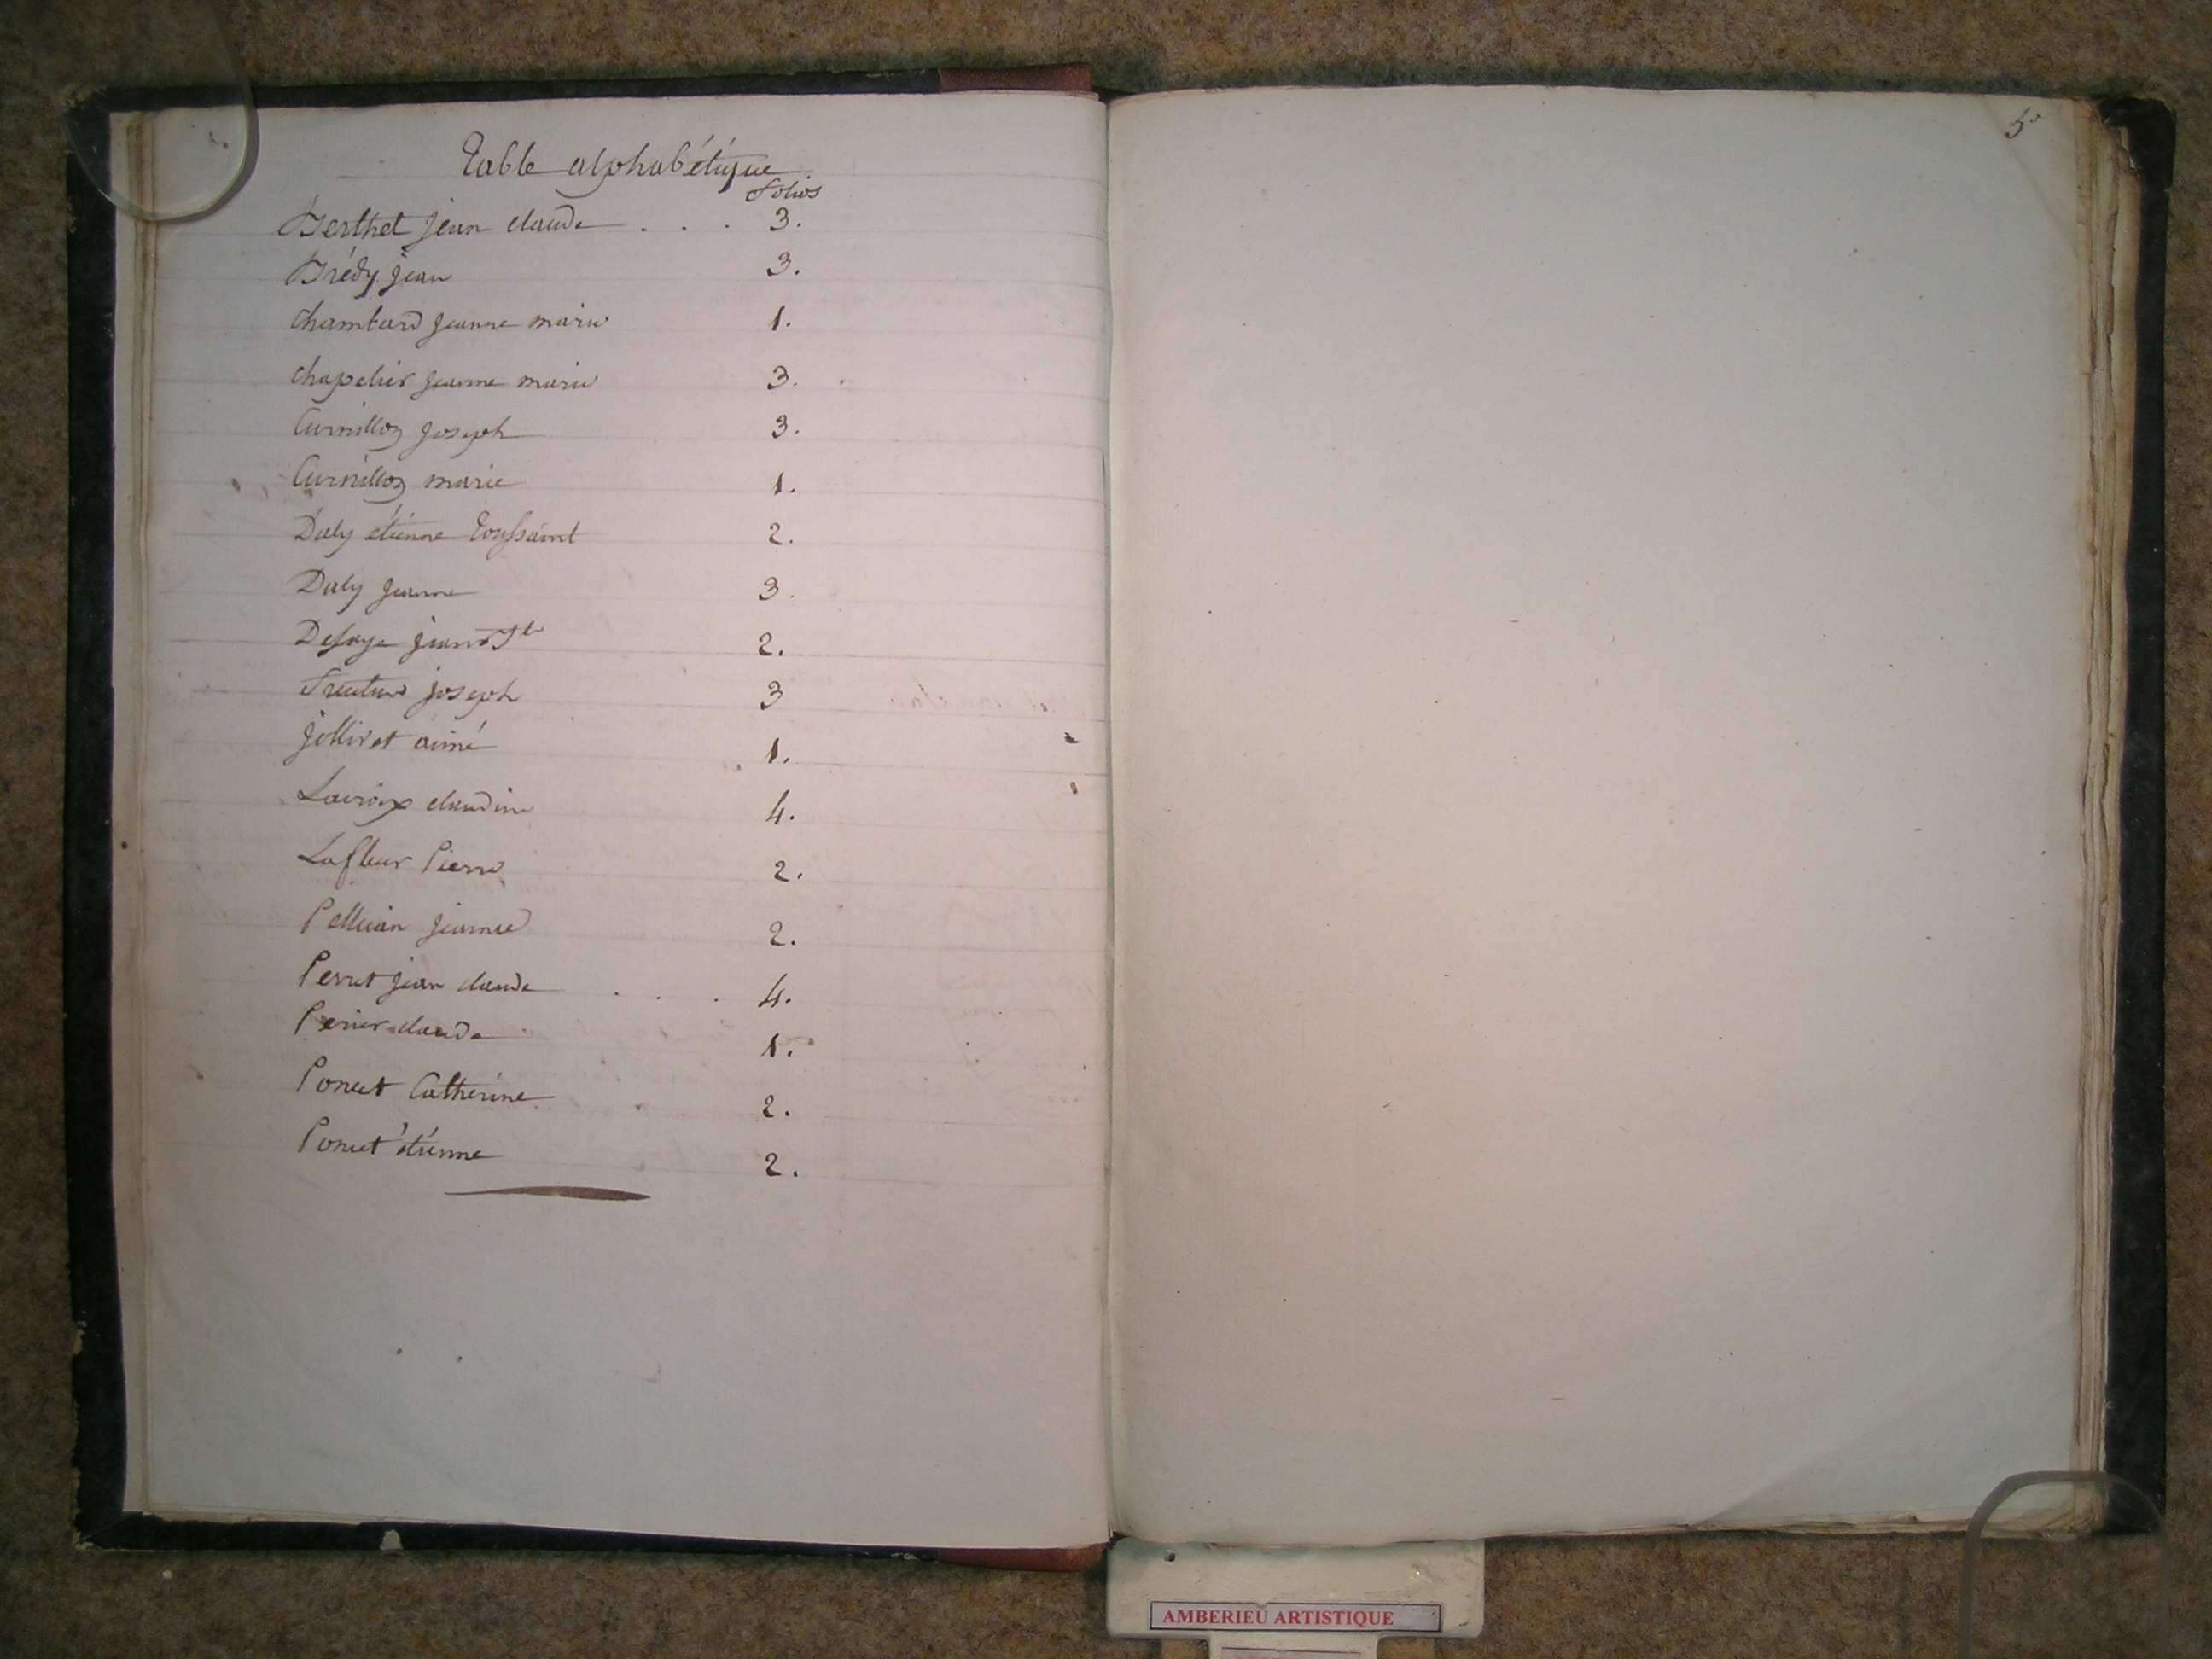 Table alphabétique
Folios
Berthet jean claude . . . 3.
Brédy jean 3.
Chambard jeanne marie 1.
Chapelier jeanne marie 3.
Curnillon joseph 3.
Curnillon marie 1.
Daly étienne Toussaint 2.
Daly jeanne 3.
Defaye 2.
joseph 3
jollivet aimé 1.
Lacroix claudine 4.
Lafleur Pierre 2.
jeanne 2.
Perret jean claude . . . 4.
Perier claude 1.
Poncet Catherine 2.
Poncet étienne 2.
5
AMBERIEU ARTISTIQUE